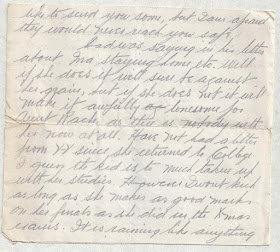 like to send you some, but I am afraid
they would never reach you safe.
Dad was saying in his letter
about Ma staying home etc. Well
if she does it will sure be against
her grain, but if she does not it will
make it awfully lonesome for
Aunt Rache as there is nobody with
her now at all. Have not had a letter
from since she returned to College
I guess the kid is to much taken up
with her studies. However I wont kick
as long as she makes as good marks
on her finals as she did in the Xmas
exams. It is raining like anything